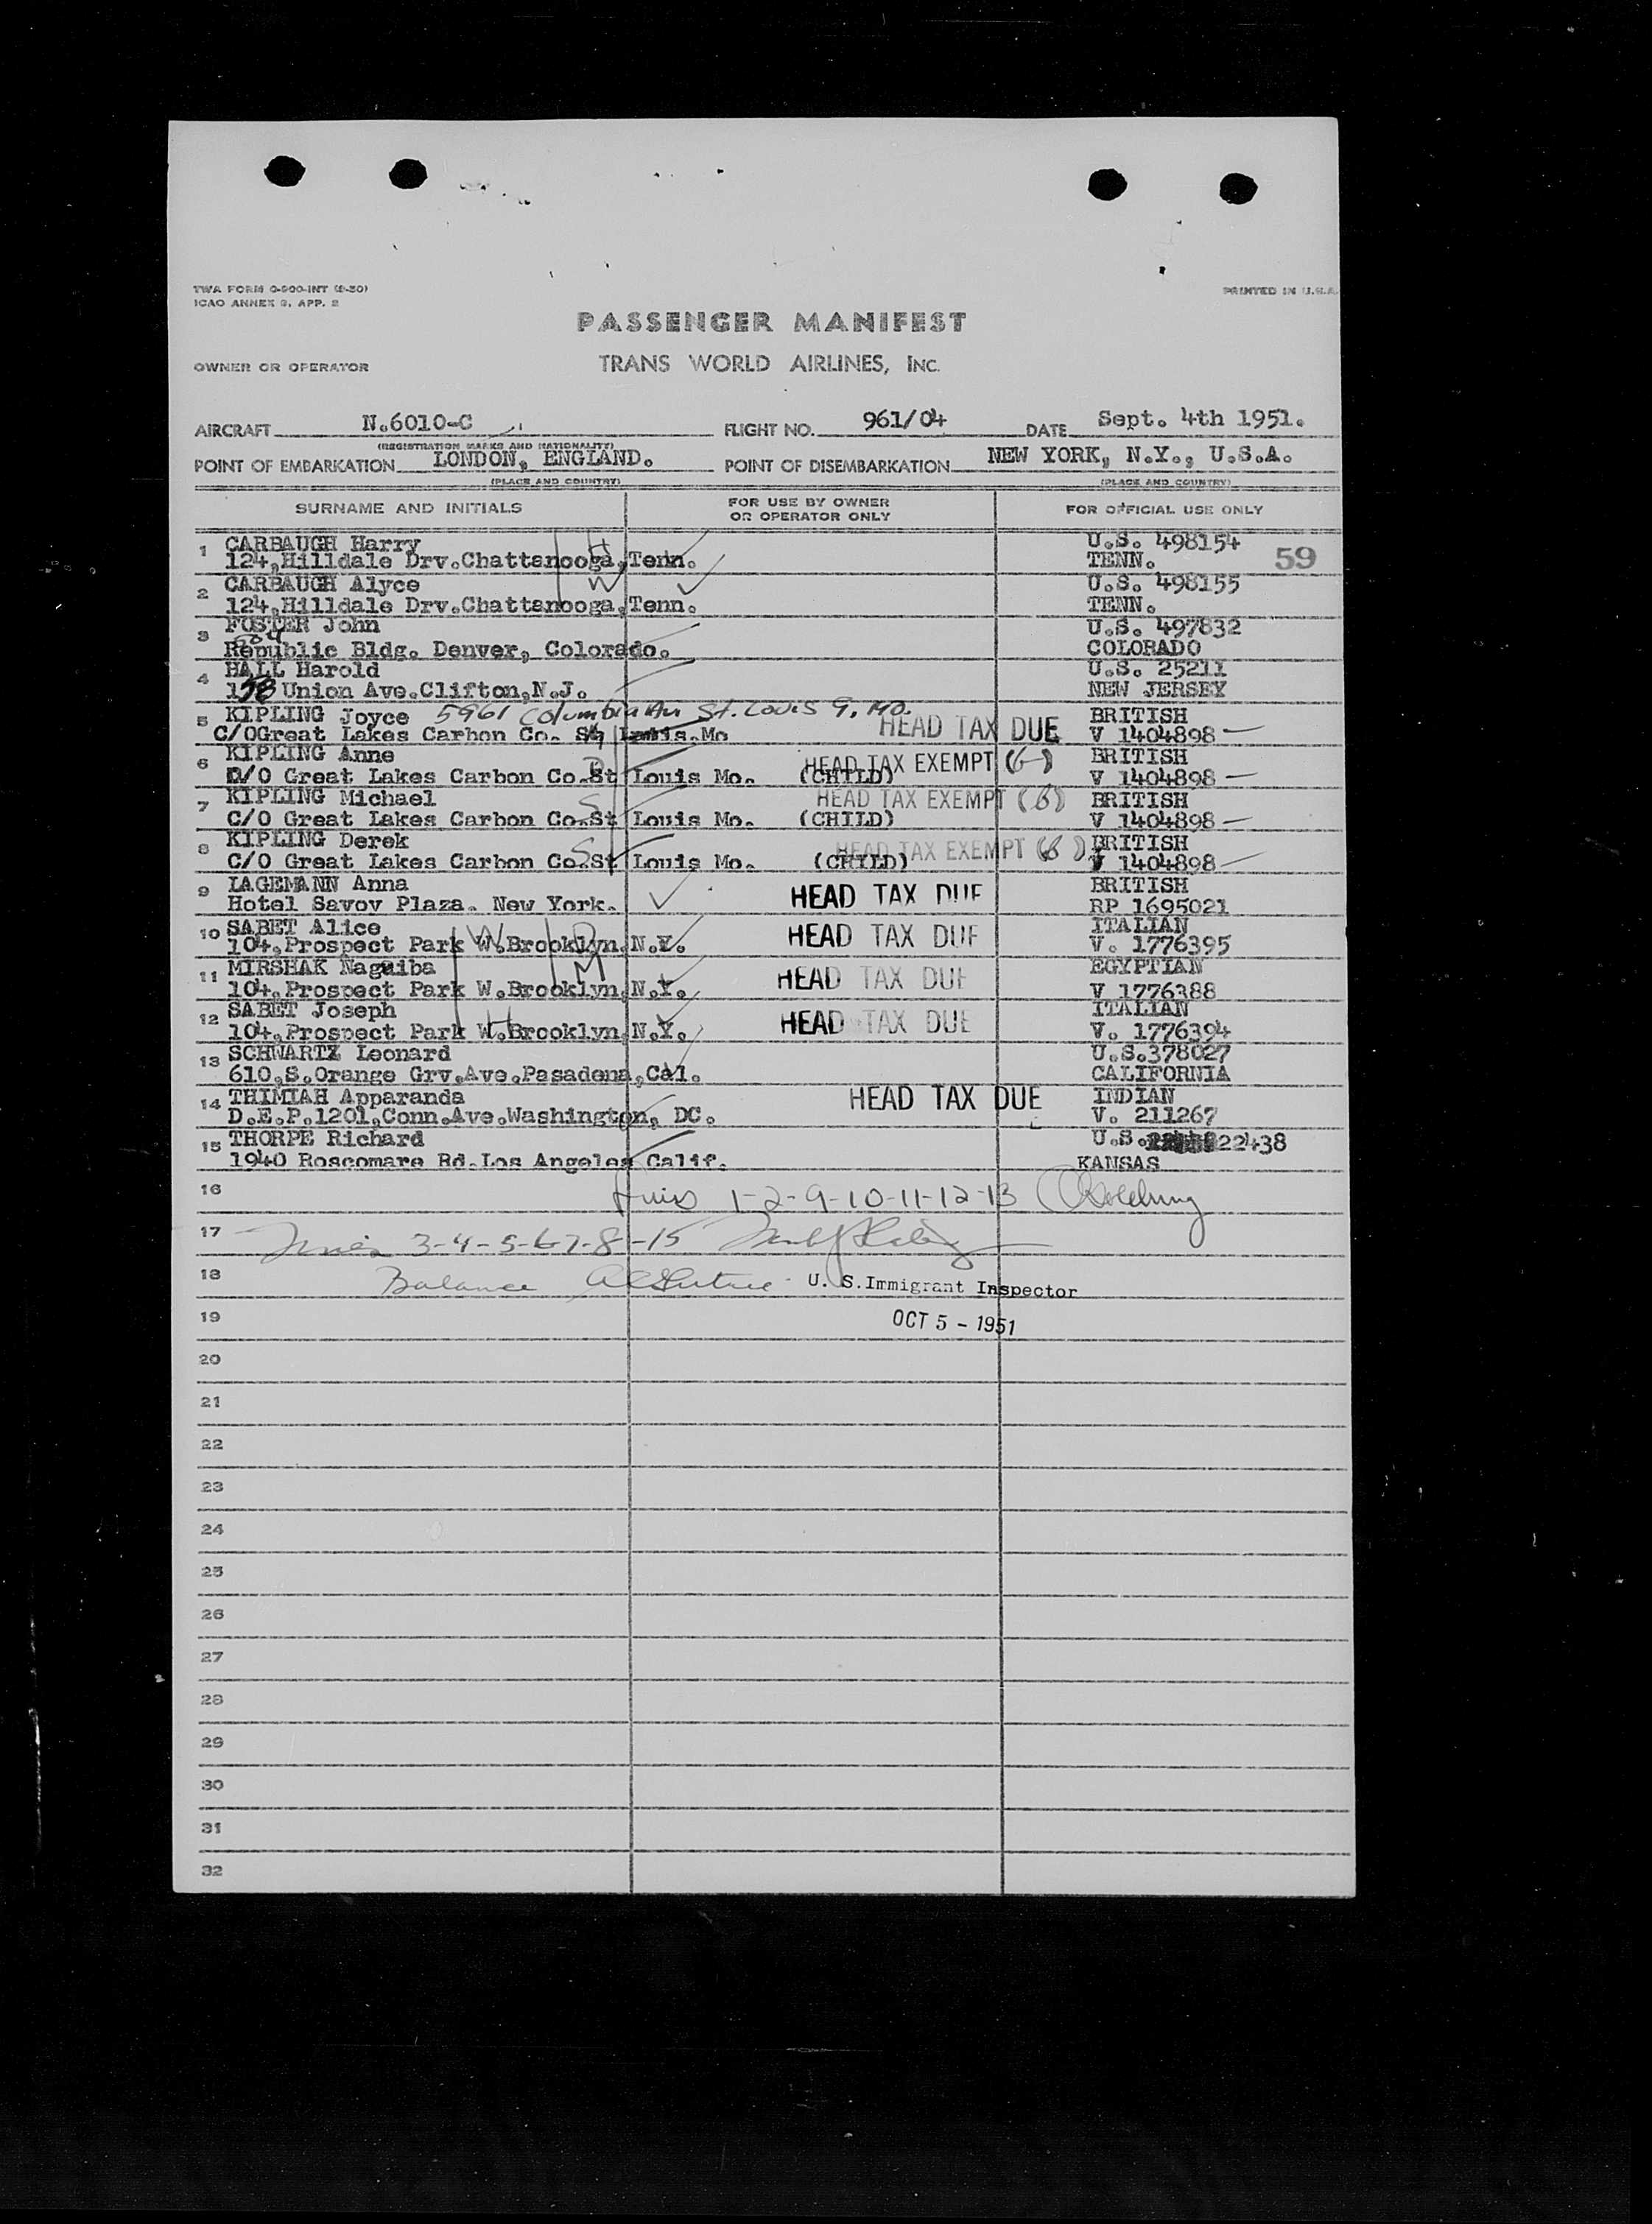 TWA FORM O-900-INT (8-50)
ICAO ANNEX 9, APP. 2
PRINTED IN U.S.A.
PASSENGER MANIFEST
OWNER OR OPERATOR
TRANS WORLD AIRLINES, INC.
AIRCRAFT N.6010-C FLIGHT NO. 961/04 DATE Sept. 4th 1951.
(REGISTRATION MARKS AND NATIONALITY)
POINT OF EMBARKATION LONDON, ENGLAND. POINT OF DISEMBARKATION NEW YORK, N.Y., U.S.A.
(PLACE AND COUNTRY) (PLACE AND COUNTRY)
SURNAME AND INITIALS FOR USE BY OWNER OR OPERATOR ONLY FOR OFFICIAL USE ONLY
1 CARBAUGH Harry H U.S. 498154
124,Hilldale Drv.Chattanooga,Tenn. TENN. 59
2 CARBAUGH Alyce W U.S. 498155
124,Hilldale Drv.Chattanooga,Tenn. TENN.
3 FOSTER John U.S. 497832
604 Republic Bldg. Denver, Colorado. COLORADO
4 HALL Harold U.S. 25211
158 Union Ave.Clifton,N.J. NEW JERSEY
5 KIPLING Joyce 5961 Columbia Av St. Louis 9, MO. HEAD TAX DUE BRITISH
C/OGreat Lakes Carbon Co. St Louis.Mo V 1404898
6 KIPLING Anne D HEAD TAX EXEMPT (6) BRITISH
C/O Great Lakes Carbon Co.St Louis Mo. (CHILD) V 1404898
7 KIPLING Michael S HEAD TAX EXEMPT (6) BRITISH
C/O Great Lakes Carbon Co.St Louis Mo. (CHILD) V 1404898
8 KIPLING Derek S HEAD TAX EXEMPT (6) BRITISH
C/O Great Lakes Carbon Co.St Louis Mo. (CHILD) V 1404898
9 LAGEMANN Anna HEAD TAX DUE BRITISH
Hotel Savoy Plaza. New York. RP 1695021
10 SABET Alice W D HEAD TAX DUE ITALIAN
104,Prospect Park W.Brooklyn,N.Y. V. 1776395
11 MIRSHAK Naguiba M HEAD TAX DUE EGYPTIAN
104,Prospect Park W.Brooklyn,N.Y. V 1776388
12 SABET Joseph H HEAD TAX DUE ITALIAN
104,Prospect Park W.Brooklyn,N.Y. V. 1776394
13 SCHWARTZ Leonard U.S.378027
610,S.Orange Grv.Ave.Pasadena,Cal. CALIFORNIA
14 THIMIAH Apparanda HEAD TAX DUE INDIAN
D.E.P.1201,Conn.Ave.Washington, DC. V. 211267
15 THORPE Richard U.S. 22438
1940 Roscomare Rd.Los Angeles Calif. KANSAS
16 1-2-9-10-11-12-13
17 3-4-5-6-7-8-15
18 Balance U. S.Immigrant Inspector
19 OCT 5 - 1951
20
21
22
23
24
25
26
27
28
29
30
31
32